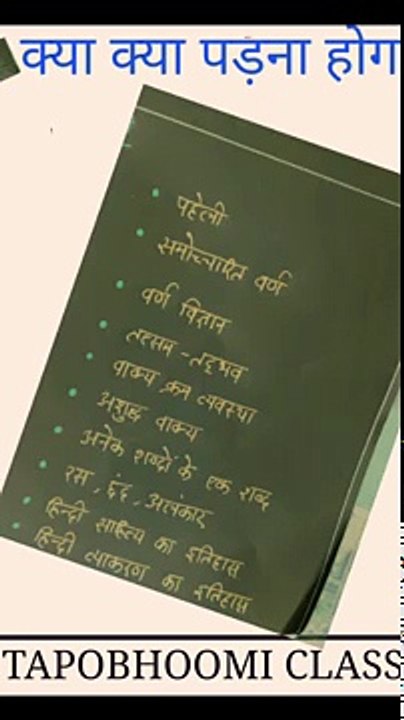 क्या क्या पड़ना होग
पहेली
समोच्चारित वर्ण
वर्ण विज्ञान
तत्सम - तद्भव
वाक्य क्रम व्यवस्था
अशुद्ध वाक्य
अनेक शब्दों के एक शब्द
रस, छंद, अलंकार
हिन्दी साहित्य का इतिहास
हिन्दी व्याकरण का इतिहास
TAPOBHOOMI CLASS